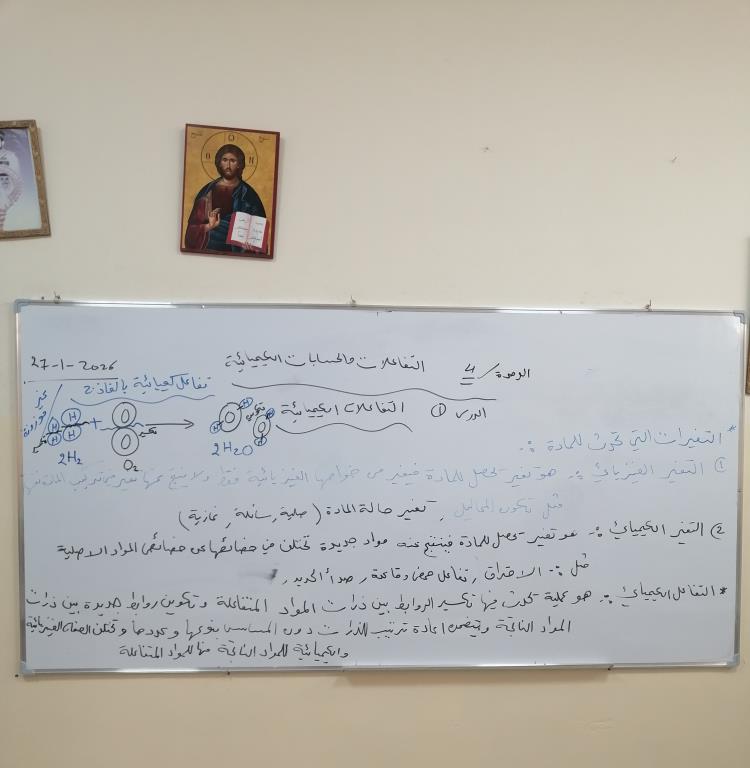 27-1-2026
الوحدة / 4 التفاعلات والحسابات الكيميائية
الدرس ① التفاعلات الكيميائية
تفاعل كيميائية بالفاذج
غير موزونة
H H + O → H O H H O H
H H O
تكسير تكسير تكوين
2H₂ O₂ 2H₂O
* التغيرات التي تحدث للمادة :-
① التغير الفيزيائي :- هو تغير يحصل للمادة فيغير من خواصها الفيزيائية فقط ولا ينتج عنها تغير في تركيب المادة
مثل تكون المحاليل , تغير حالة المادة (صلبة, سائلة, غازية)
② التغير الكيميائي :- هو تغير يحصل للمادة فينتج عنه مواد جديدة تختلف في خصائصها عن خصائص المواد الاصلية
مثل :- الاحتراق , تفاعل حمض وقاعدة , صدأ الحديد ,
* التفاعل الكيميائي :- هو عملية تحدث فيها تكسير الروابط بين ذرات المواد المتفاعلة وتكوين روابط جديدة بين ذرات
المواد الناتجة ويتضمن اعادة ترتيب للذرات دون المساس بنوعها وعددها وتختلف الصفات الفيزيائية
والكيميائية للمواد الناتجة منها للمواد المتفاعلة